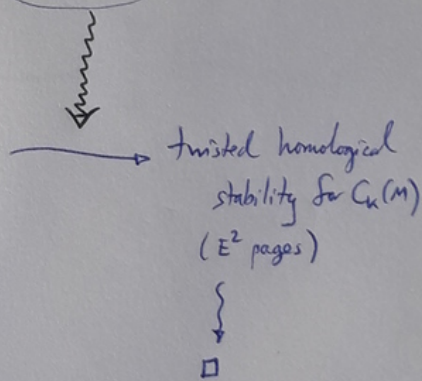 twisted homological
stability for Cₖ(M)
(E² pages)
□